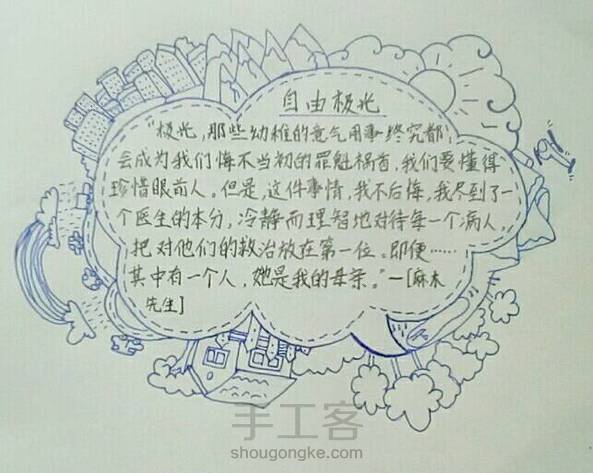 自由极光
“极光，那些幼稚的意气用事终究都
会成为我们悔不当初的罪魁祸首，我们要懂得
珍惜眼前人。但是，这件事情，我不后悔，我尽到了一
个医生的本分，冷静而理智地对待每一个病人，
把对他们的救治放在第一位。即便……
其中有一个人，她是我的母亲。”—[麻木
先生]
手工客
shougongke.com